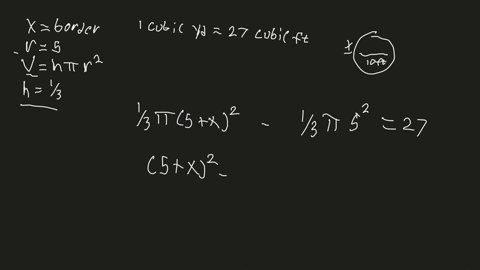 x = border
r = 5
V = hπr²
h = 1/3
1 cubic yd = 27 cubic ft
x
10ft
1/3 π (5+x)² - 1/3 π 5² = 27
(5+x)² -